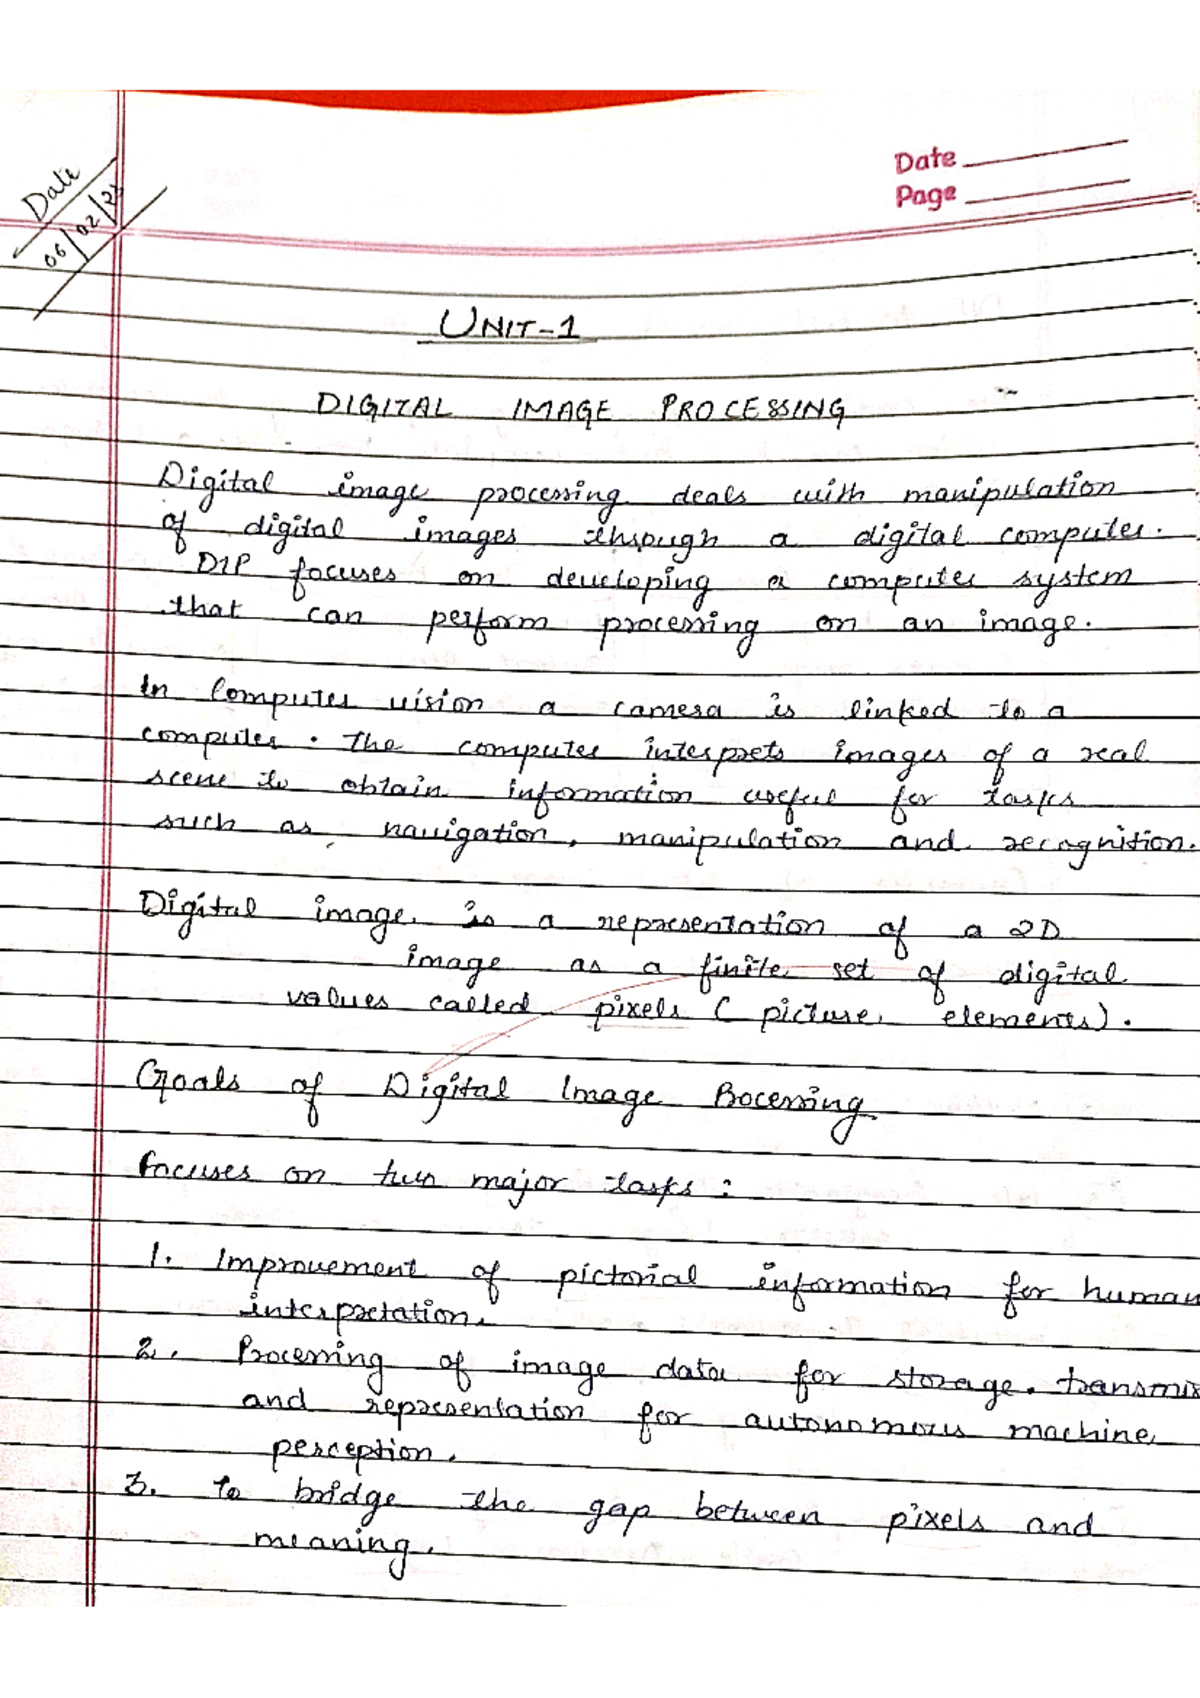 Date
Page
Date
06/02/23
UNIT-1
DIGITAL IMAGE PROCESSING
Digital image processing deals with manipulation
of digital images through a digital computer.
DIP focuses on developing a computer system
that can perform processing on an image.
In Computer vision a camera is linked to a
computer. The computer interprets images of a real
scene to obtain information useful for tasks
such as navigation, manipulation and recognition.
Digital image is a representation of a 2D
image as a finite set of digital
values called pixels (picture elements).
Goals of Digital Image Processing
Focuses on two major tasks:
1. Improvement of pictorial information for human
interpretation.
2. Processing of image data for storage. transmis
and representation for autonomous machine
perception.
3. to bridge the gap between pixels and
meaning.